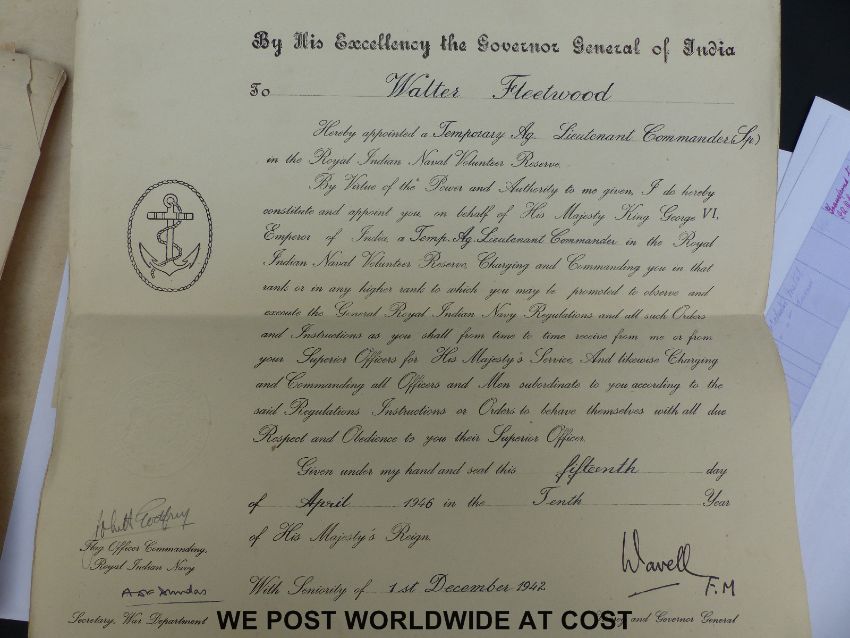 By His Excellency the Governor General of India
To Walter Fleetwood
Hereby appointed a Temporary Ag. Lieutenant Commander (Sp)
in the Royal Indian Naval Volunteer Reserve.
By Virtue of the Power and Authority to me given, I do hereby
constitute and appoint you, on behalf of His Majesty King George VI,
Emperor of India, a Temp. Ag. Lieutenant Commander in the Royal
Indian Naval Volunteer Reserve, Charging and Commanding you in that
rank or in any higher rank to which you may be promoted to observe and
execute the General Royal Indian Navy Regulations and all such Orders
and Instructions as you shall from time to time receive from me or from
your Superior Officers for His Majesty's Service, And likewise Charging
and Commanding all Officers and Men subordinate to you according to the
said Regulations Instructions or Orders to behave themselves with all due
Respect and Obedience to you their Superior Officer.
Given under my hand and seal this fifteenth day
of April 1946 in the Tenth Year
of His Majesty's Reign.
Godfrey
Flag Officer Commanding,
Royal Indian Navy
Wavell
F.M
With Seniority of 1st December 1942.
Secretary, War Department
and Governor General
WE POST WORLDWIDE AT COST